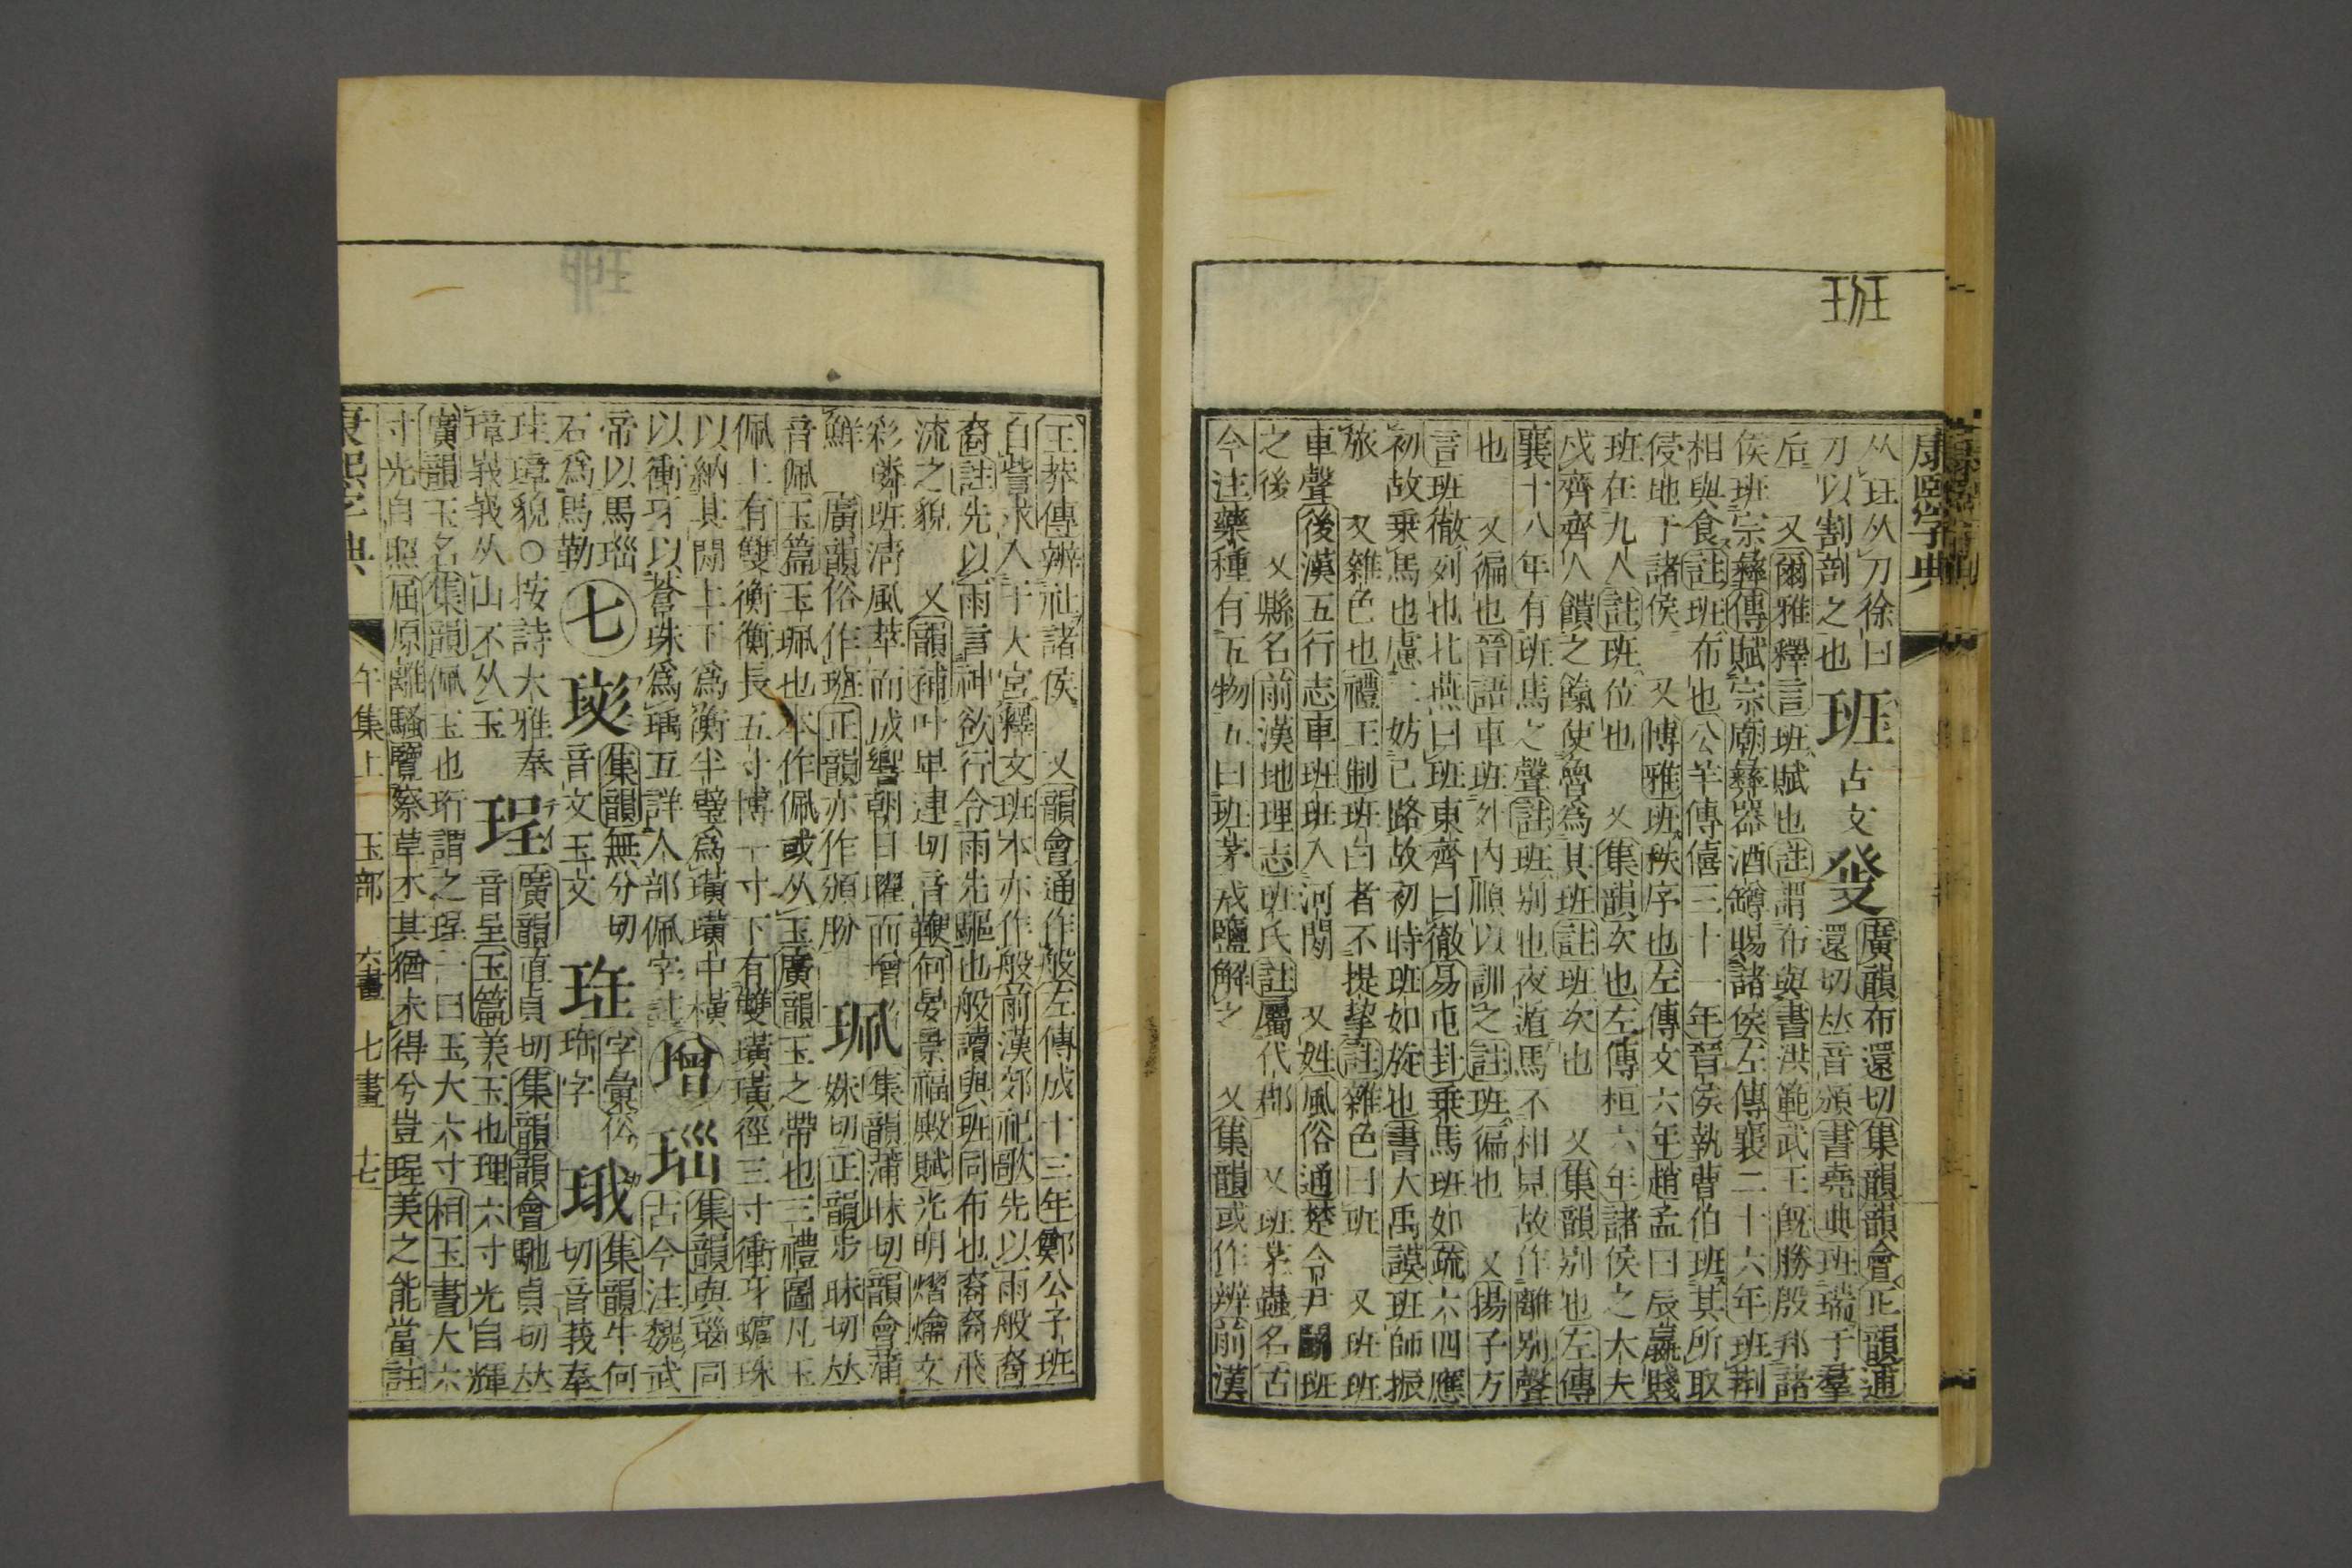 班
康熙字典
从玨从刀徐曰
刀以割剖之也 班 古文 𤼲 還切𠀤音頒書堯典班瑞于羣
廣韻布還切集韻韻會正韻逋
后 又爾雅釋言班賦也註謂布與書洪範武王旣勝殷邦諸
侯班宗彝傳賦宗廟彝器酒罇賜諸侯左傳襄二十六年班荆
相與食註班布也公羊傳僖三十一年晉侯執曹伯班其所取
侵地于諸侯 又博雅班秩序也左傳文六年趙孟曰辰嬴賤
班在九人註班位也 又集韻次也左傳桓六年諸侯之大夫
戍齊齊人饋之餼使魯爲其班註班次也 又集韻別也左傳
襄十八年有班馬之聲註班別也夜遁馬不相見故作離別聲
也 又徧也晉語車班外內順以訓之註班徧也 又揚子方
言班徹列也北燕曰班東齊曰徹易屯卦乗馬班如疏六四應
初故乗馬也慮二妨己路故初時班如旋也書大禹謨班師振
旅 又雜色也禮王制班白者不提挈註雜色曰班 又班班
車聲後漢五行志車班班入河閒 又姓風俗通楚令尹鬭班
之後 又縣名前漢地理志班氏註屬代郡 又班茅蟲名古
今注藥種有五物五曰班茅戎鹽解之 又集韻或作辨前漢
王莽傳辨社諸侯 又韻會通作般左傳成十三年鄭公子班
自訾求入于大宮釋文班本亦作般前漢郊祀歌先以雨般裔
裔註先以雨言神欲行令雨先驅也般讀與班同布也裔裔飛
流之貌 又韻補叶卑連切音鞭何晏景福殿賦光明熠爚文
彩璘班淸風萃而成響朝日曜而增鮮
廣韻俗作班正韻亦作頒肦 珮 集韻蒲昧切韻會蒲
妹切正韻步昧切𠀤
音佩玉篇玉珮也本作佩或从玉廣韻玉之帶也三禮圖凡玉
佩上有雙衡衡長五寸博一寸下有雙璜璜徑三寸衝牙蠙珠
以納其閒上下爲衡半璧爲璜璜中橫
以衝牙以蒼珠爲瑀互詳人部佩字註 增 𤥐 集韻與碯同
古今注魏武
帝以馬瑙
石爲馬勒 七 㻎 集韻無分切
音文玉文 珄 字彙俗
珎字 珴 集韻牛何
切音莪奉
珪璋貌○按詩大雅奉
璋峩峩从山不从玉 珵 廣韻直貞切集韻韻會馳貞切𠀤
音呈玉篇美玉也理六寸光自輝
廣韻玉名集韻佩玉也珩謂之珵一曰玉大六寸相玉書大六
寸光自照屈原離騷覽察草木其猶未得兮豈珵美之能當註
康熙字典 午集上 玉部 六畫 七畫 十七